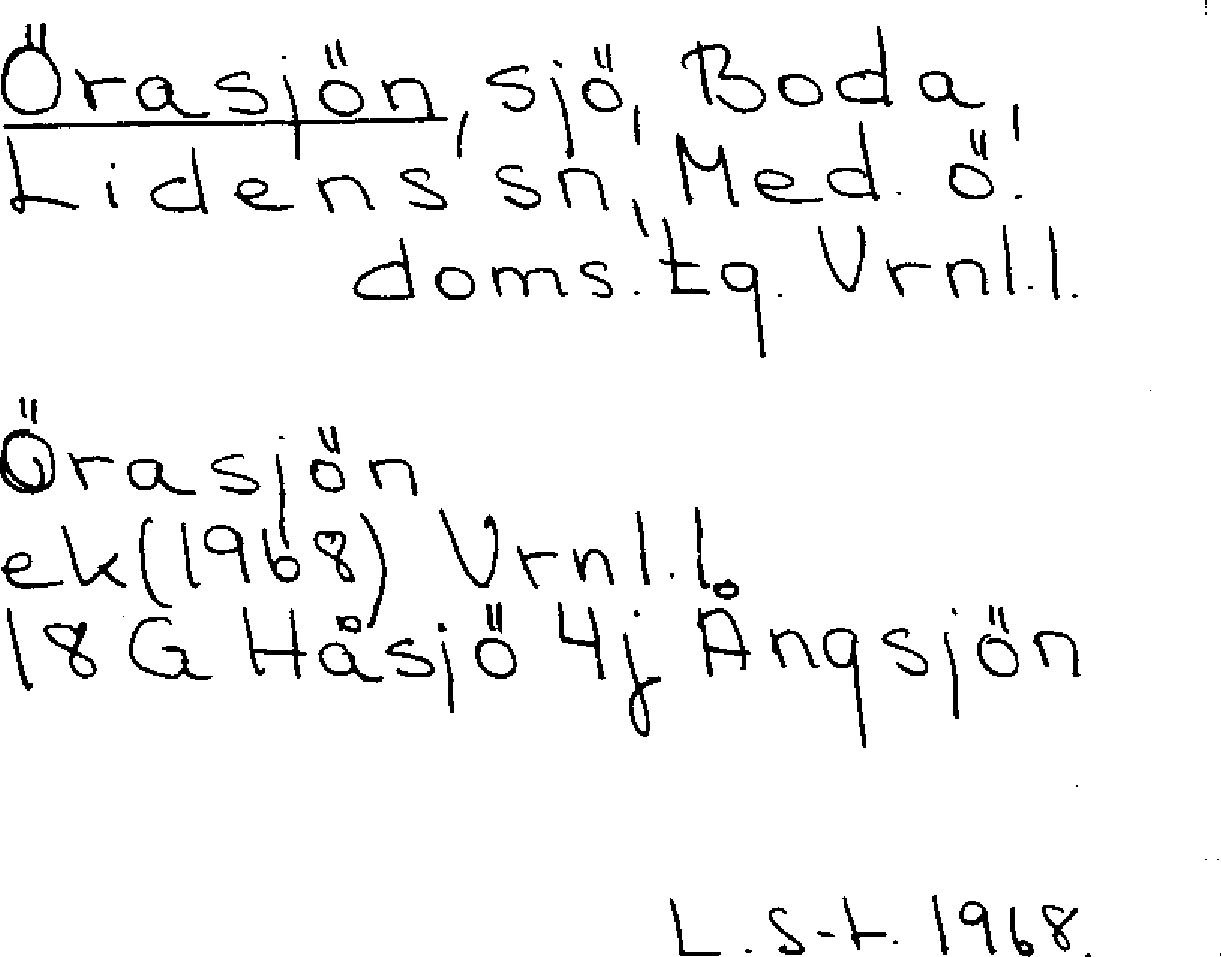 Örasjön, sjö, Boda,
Lidens sn, Med. ö.
doms. tg. Vrnl.l.
Örasjön
ek(1968) Vrnl.l.
18G Håsjö 4j Ångsjön
L. S-t. 1968.